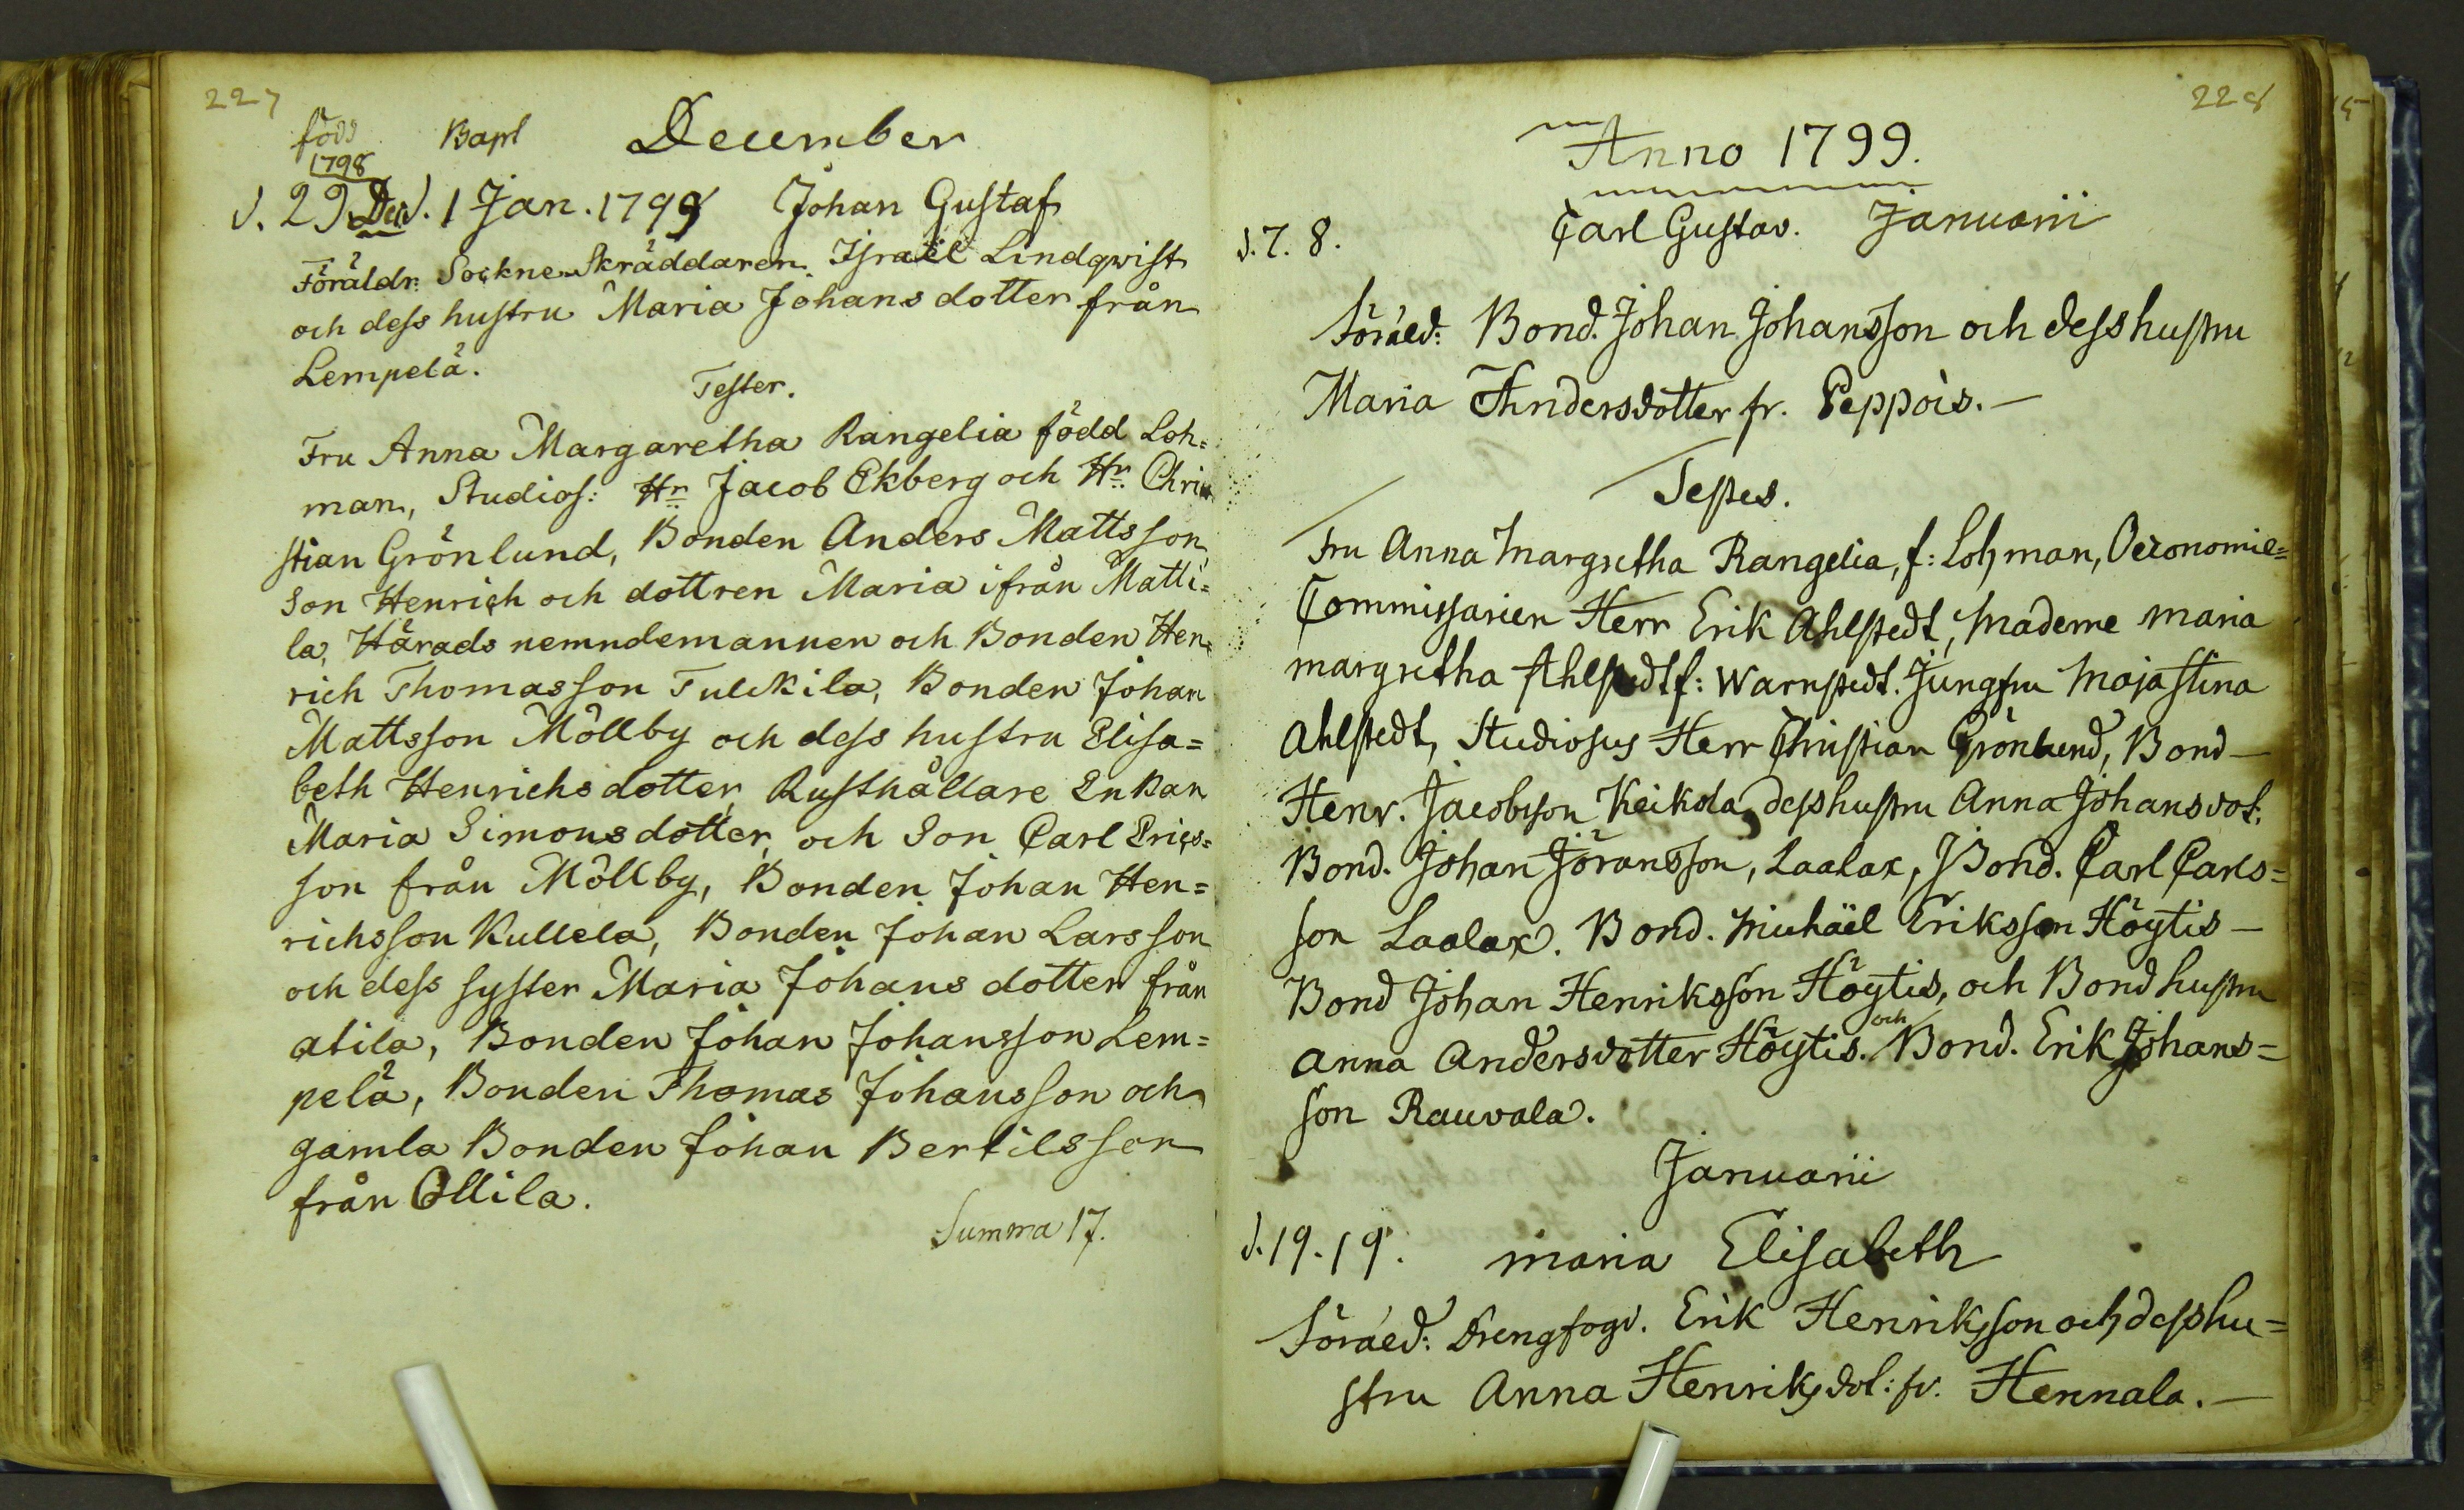 227
född Bapt December
1798
d. 29 Dec d. 1 Jan. 1799 Johan Gustaf
Föräldr: Sockne Skräddaren Israël Lindqwist
och dess hustru Maria Johansdotter från
Lempelä.
Tester.
Fru Anna Margaretha Rangelia född Loh=
man, Studios: Hr Jacob Ekberg och Hr Chri
stian Grönlund, Bonden Anders Mattsson
Son Henrich och dottren Maria ifrån Matti=
la, Härads nemndemannen och Bonden Hen=
rich Thomasson Tulckila, Bonden Johan
Mattsson Möllby och dess hustru Elisa=
beth Henrichsdotter, Rusthållare Enkan
Maria Simonsdotter, och Son Carl Erics=
son från Möllby, Bonden Johan Hen=
richsson Kullela, Bonden Johan Larsson
och dess syster Maria Johansdotter från
atila, Bonden Johan Johansson Lem=
pelä, Bonden Thomas Johansson och
gamla Bonden Johan Bertilsson
från Ollila.
Summa 17.
228
Anno 1799.
d. 7. 8. Carl Gustav. Januarii
Föräld: Bond. Johan Johansson och dess hustru
Maria Andersdotter fr. Peppois.—
Testes.
Fru Anna Margretha Rangelia, f: Lohman, Oeconomie=
Commissarien Herr Erik Ahlstedt, Madame Maria
Margretha Ahlstedt f: Warnstedt. Jungfru Maja Stina
Ahlstedt, Studiosus Herr Christian Grönlund, Bond—
Henr. Jacobsson Keikola, dess hustru Anna Johansdot:
Bond. Johan Jöransson, Laalax, Bond. Carl Carls=
son Laalax. Bond. Michäel Eriksson Höytis—
Bond Johan Henriksson Höytis, och Bondhustru
Anna Andersdotter Höytis. och Bond. Erik Johans=
son Rauvola.
Januarii
d. 19. 19. Maria Elisabeth
Föräld: Drengfogd. Erik Henriksson och dess hu=
stru Anna Henriksdot: fr. Hennala.—